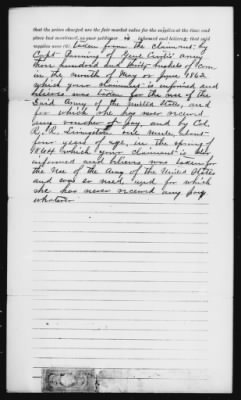 that the prices charged are the fair market value for the supplies at the time and
place last mentioned, as your petitioner is informed and believes; that said
supplies were (8) taken from the claimant by
Capt. Denning of Gen Curtis army
three hundred and thirty bushels of Corn
in the month of May or June 1862
which your claimant is informed and
believes was taken for the use of the
Said Army of the United States, and
for which she has never received
any voucher or pay, and by Col.
R. R. Livingston one mule, about
four years of age, in the spring of
1864 which your claimant is also
informed and believes was taken for
the use of the Army of the United States
and was so used, and for which
she has never received any pay
whatever